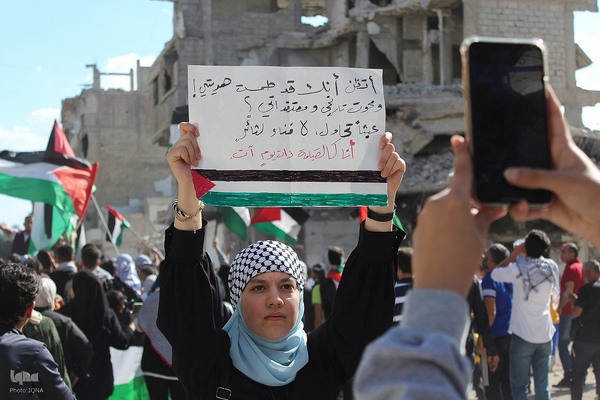 أتظن أنك قد طمست هويتي!
ومحوت تاريخي ومعتقداتي؟
عبثاً تحاول، لا فناء لثائر
أنا كالقيامة ذات يوم آت.
iqna
Photo: IQNA